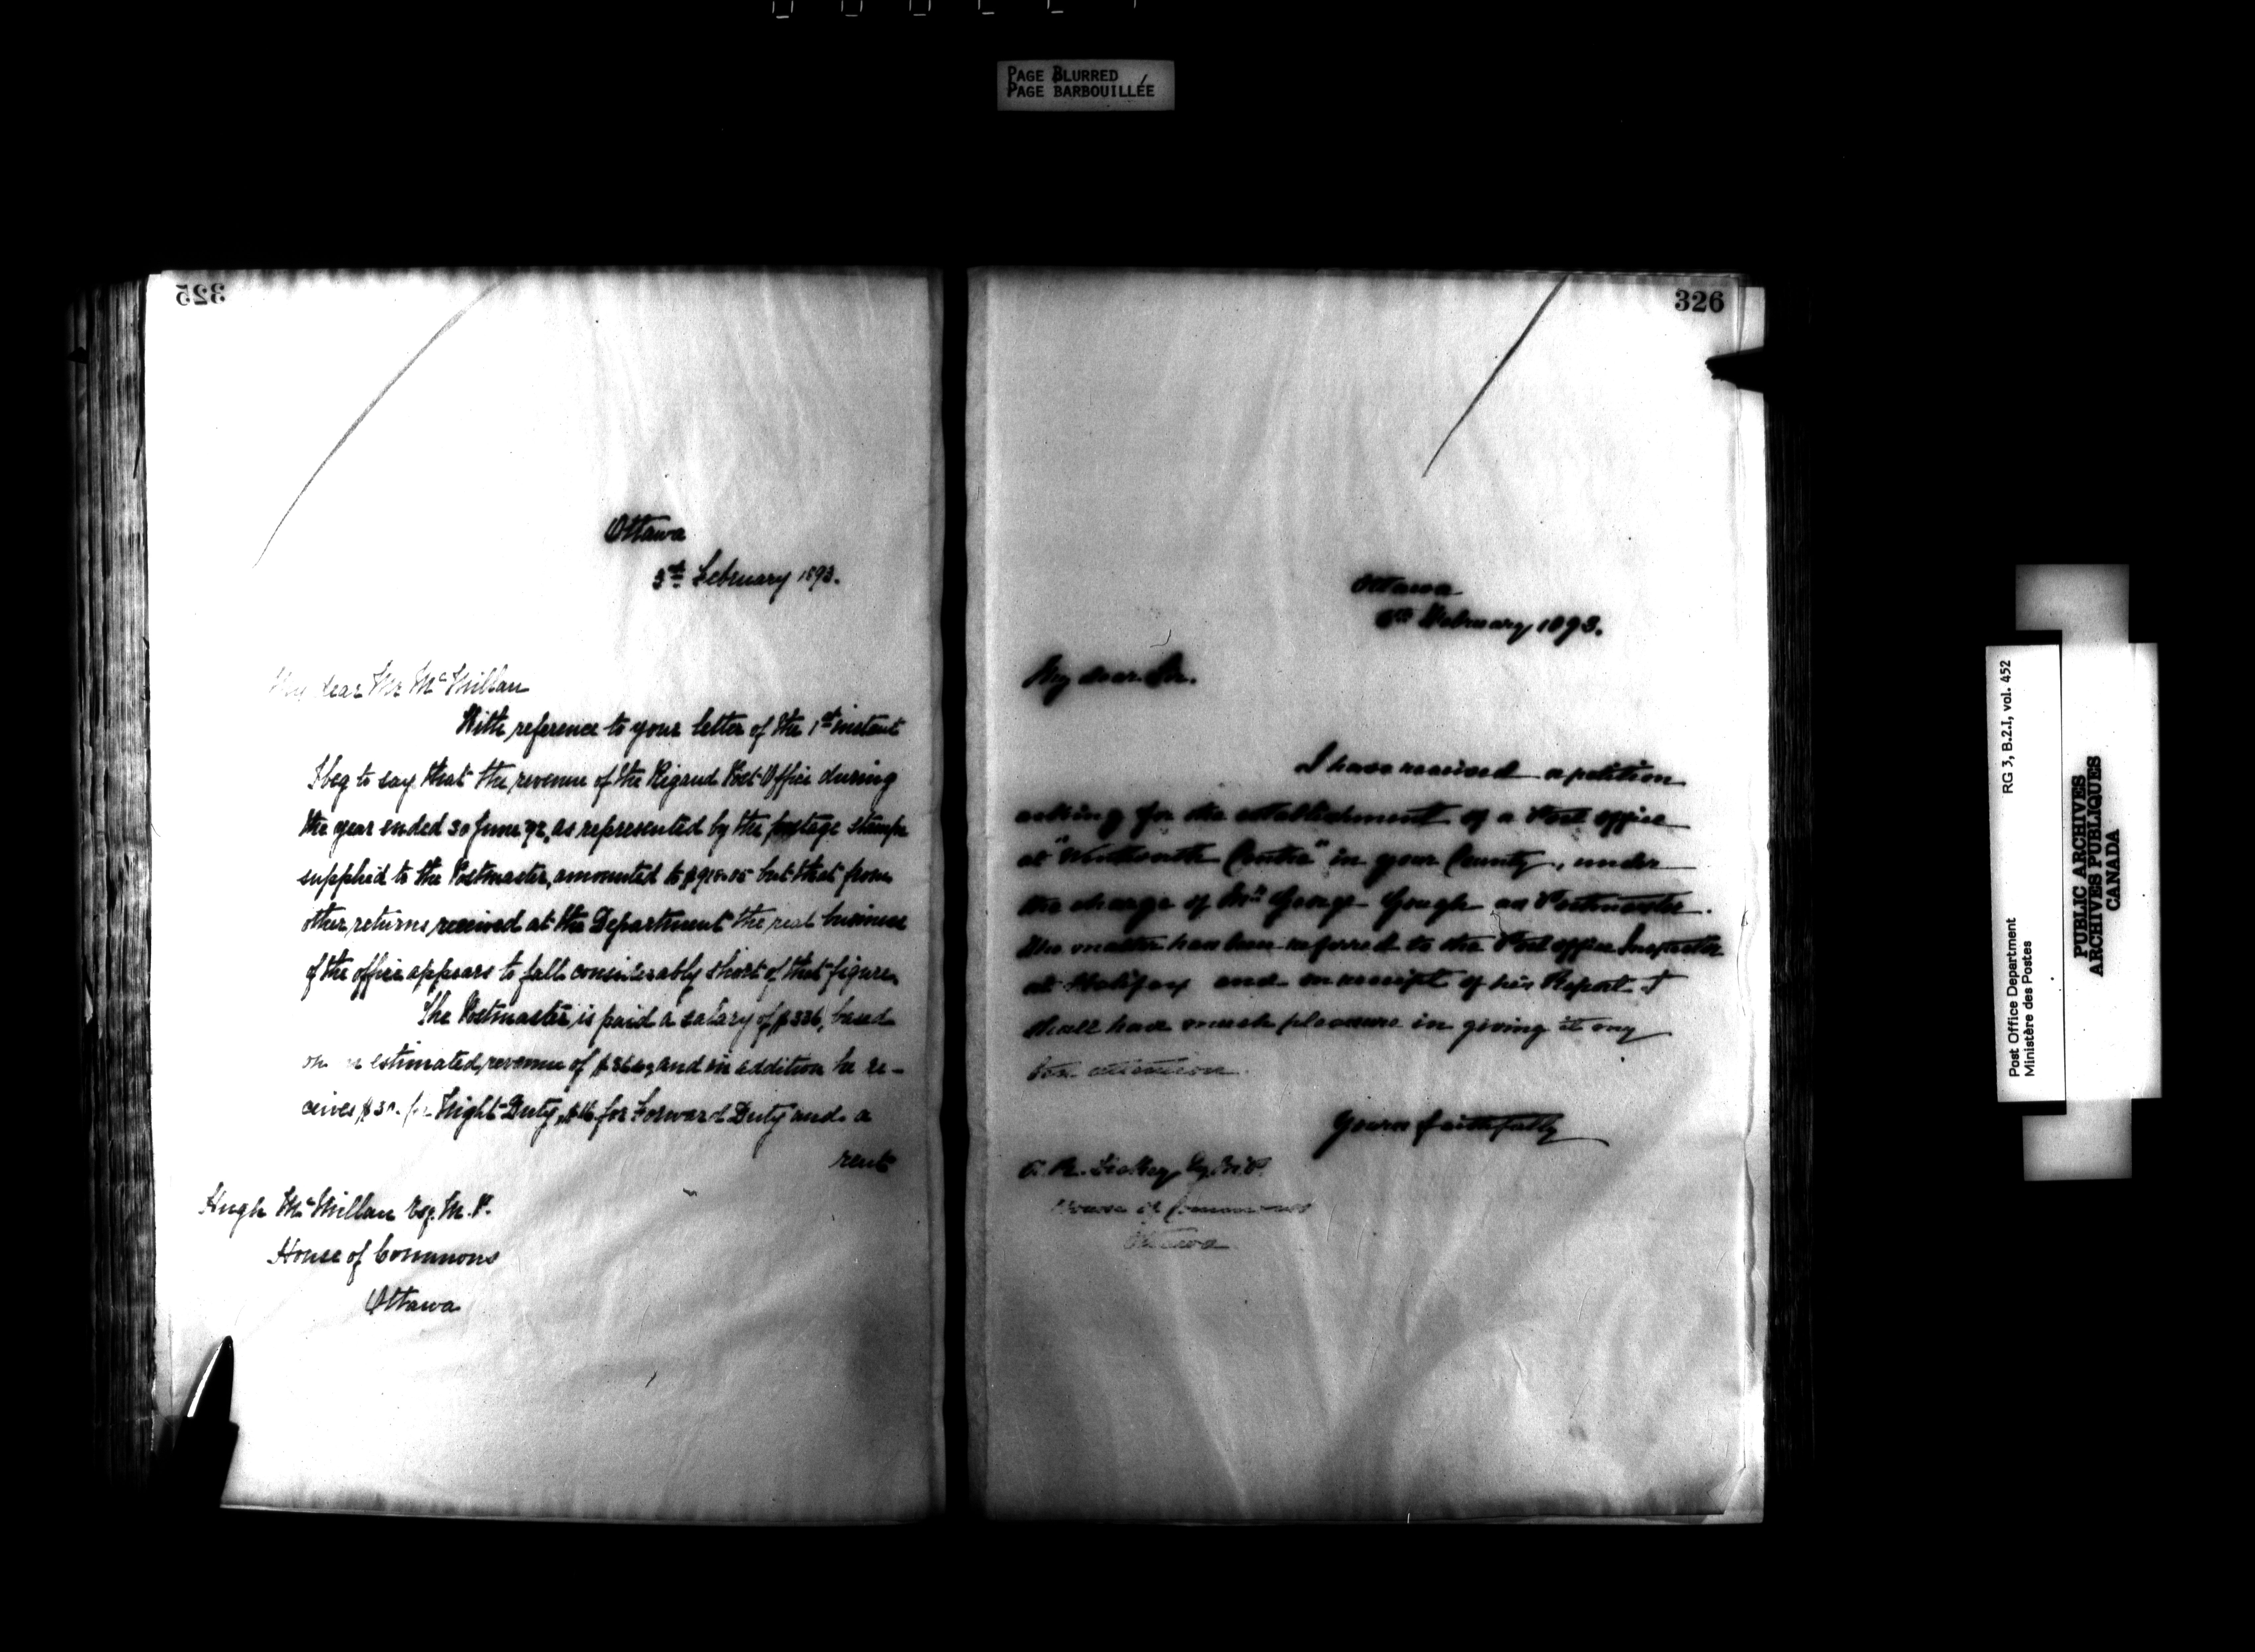 PAGE BLURRED
PAGE BARBOUILLÉE
325
Ottawa
3rd February 1893.
My dear Mr McMillan
With reference to your letter of the 1st instant
I beg to say that the revenue of the Rigaud Post Office during
the year ended 30 June 92, as represented by the postage stamps
supplied to the Postmaster, amounted to but that from
other returns received at the Department the real business
of the office appears to fall considerably short of that figure.
The Postmaster is paid a salary of $336, based
on an estimated revenue of and in addition he re-
ceives for Night Duty, $16 for Forward Duty and a
rent
Hugh McMillan Esq. M.P.
House of Commons
Ottawa
326
Ottawa
February 1893.
My dear Sir.
I have received a petition
asking for the establishment of a Post office
at "Wentworth Centre" in your County, under
the charge of Mr George Gough as Postmaster.
The matter has been referred to the Post office Inspector
at Halifax and on receipt of his Report I
shall have much pleasure in giving it my
best attention.
Yours faithfully
A. R. Dickey, Esq. M.P.
House of Commons
Ottawa
Post Office Department
Ministère des Postes
RG 3, B.2.I, vol. 452
PUBLIC ARCHIVES
ARCHIVES PUBLIQUES
CANADA